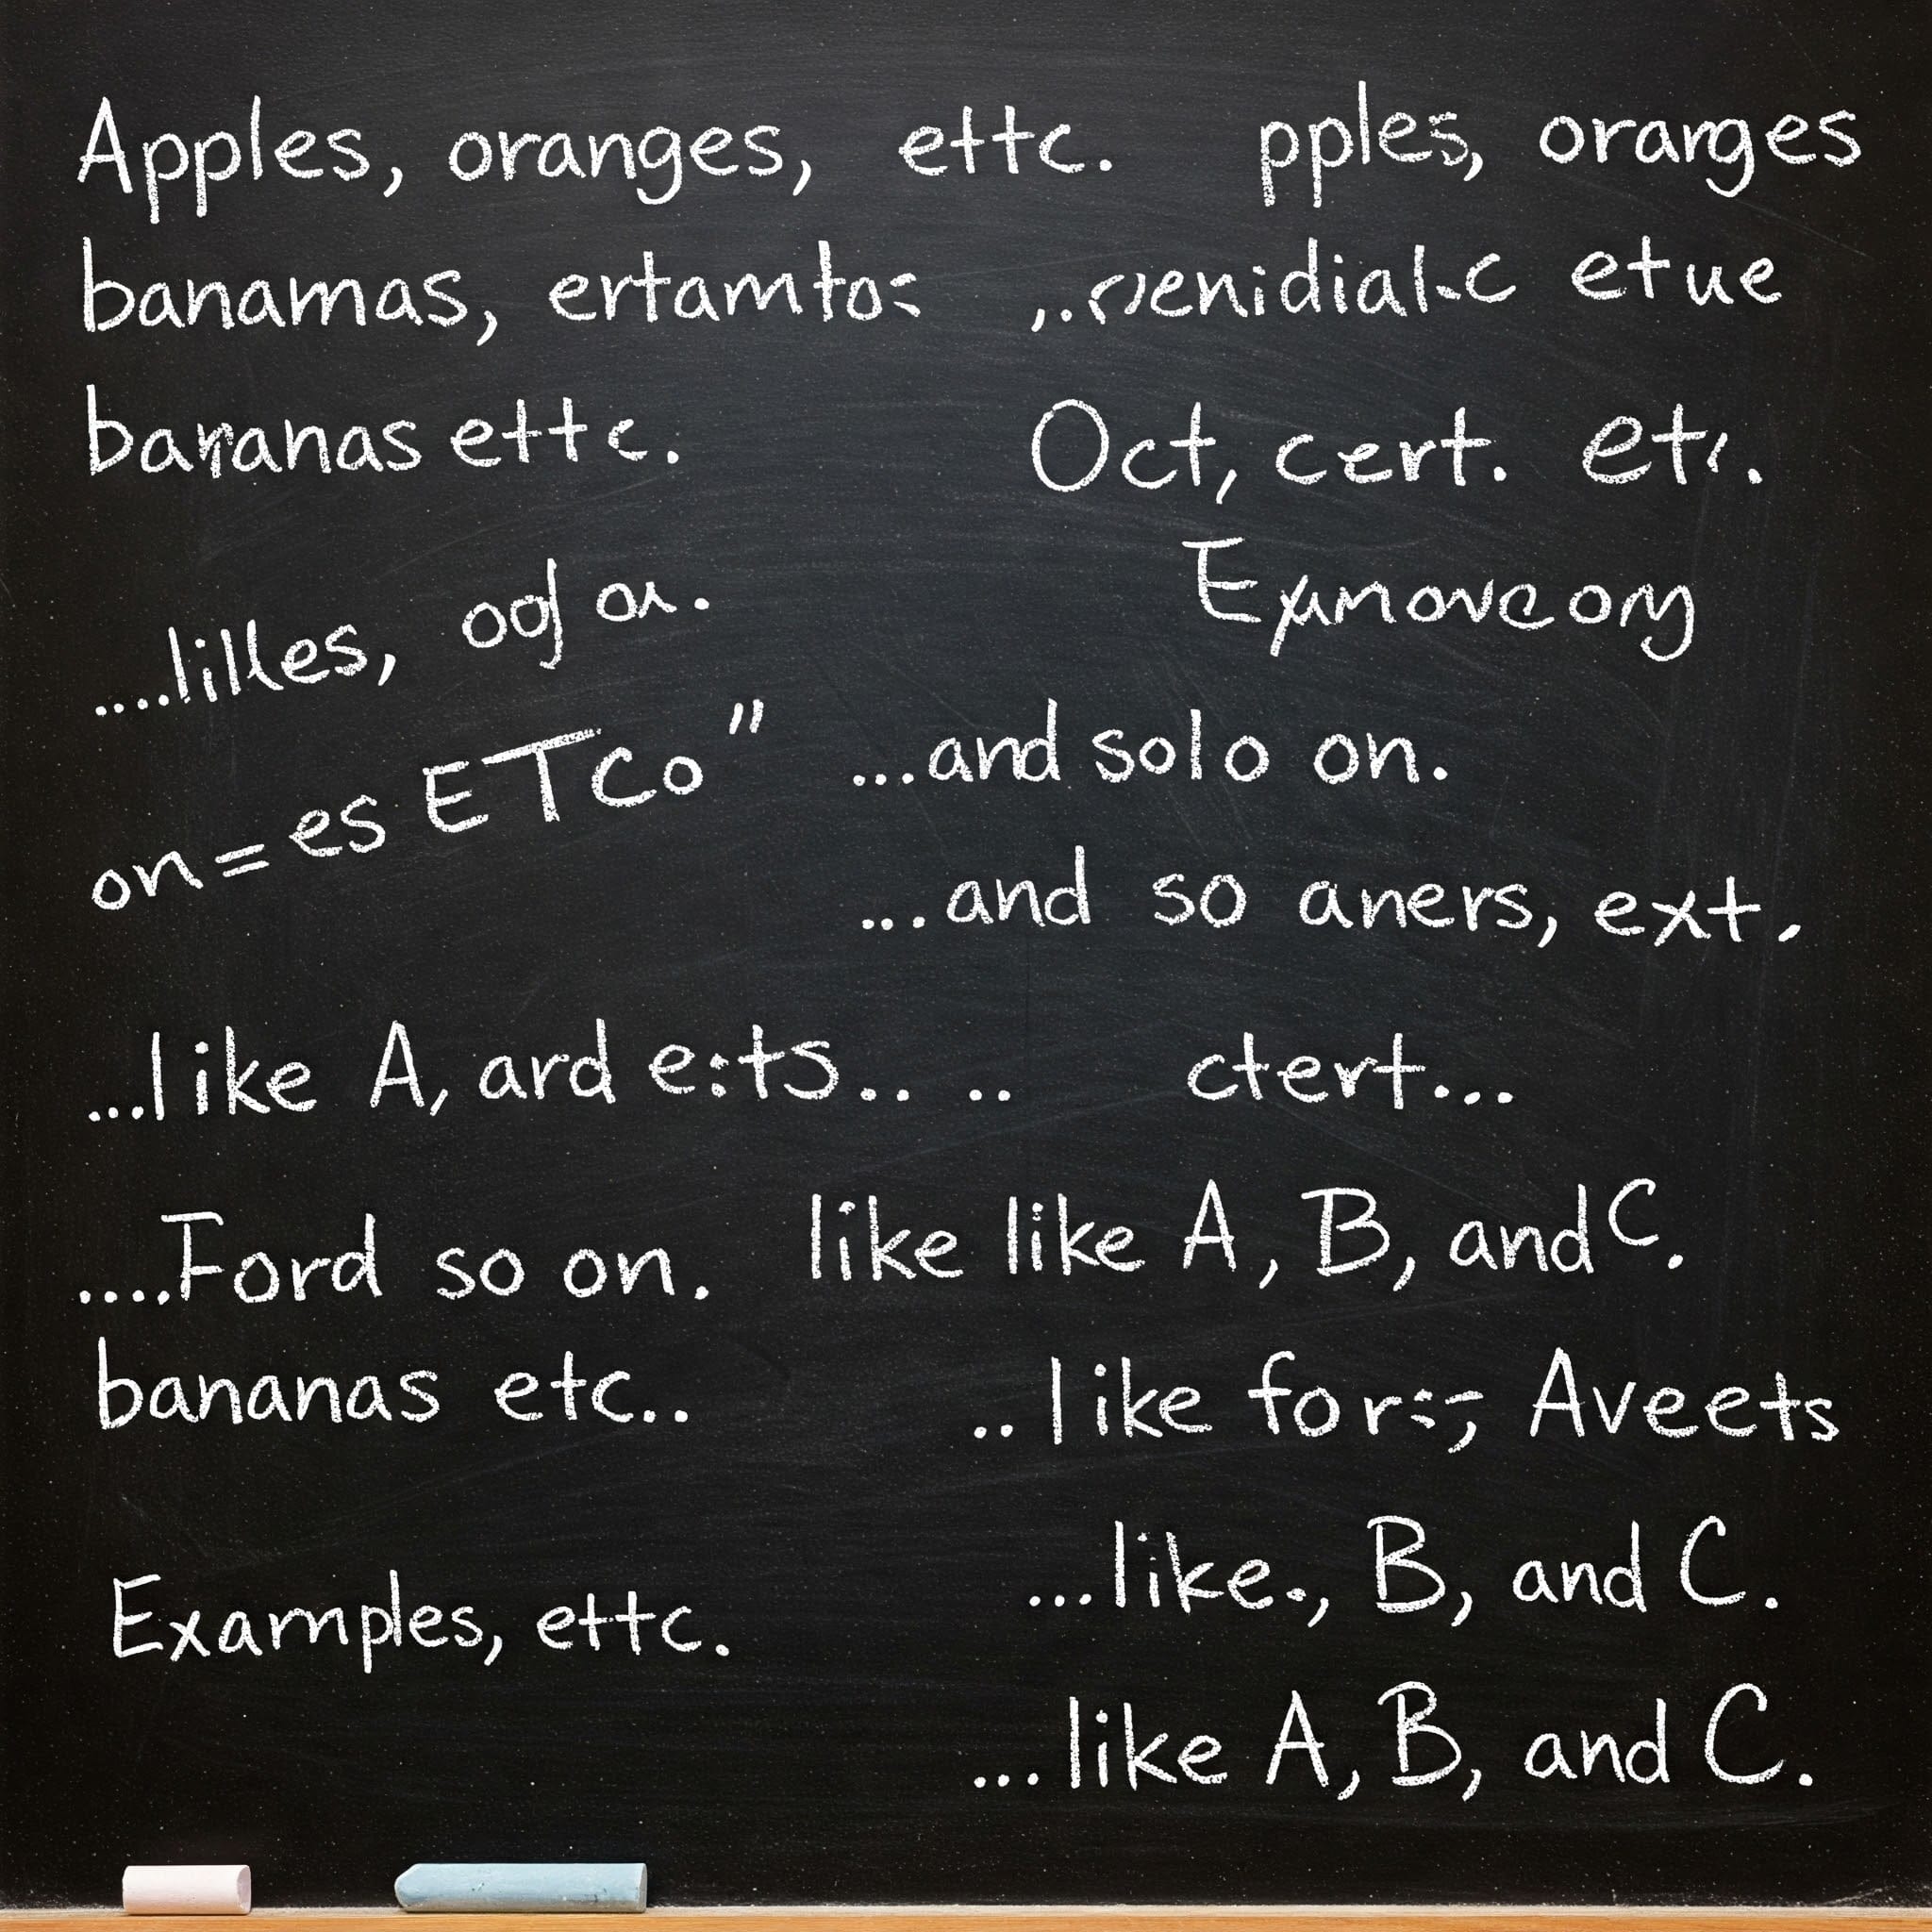 Apples, oranges, ettc. pples, oranges
banamas, ertamtos
etue
bananas ettc.
Oct, cert. etc.
....lilles,
Exmoveony
on=es ETCo"
...and solo on.
...and so aners, ext.
...like A, ard e:ts.. ..
ctert...
....Ford so on.
like like A, B, and C.
bananas etc..
.. like for:-; Aveets
...like., B, and C.
Examples, ettc.
...like A, B, and C.